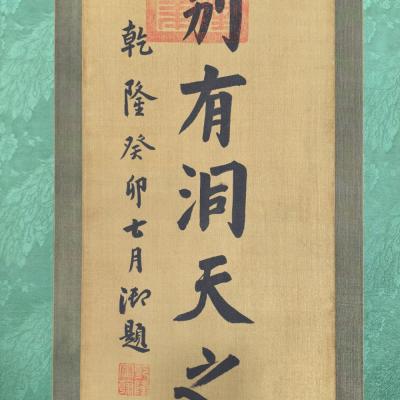 別有洞天之
乾隆癸卯七月御題